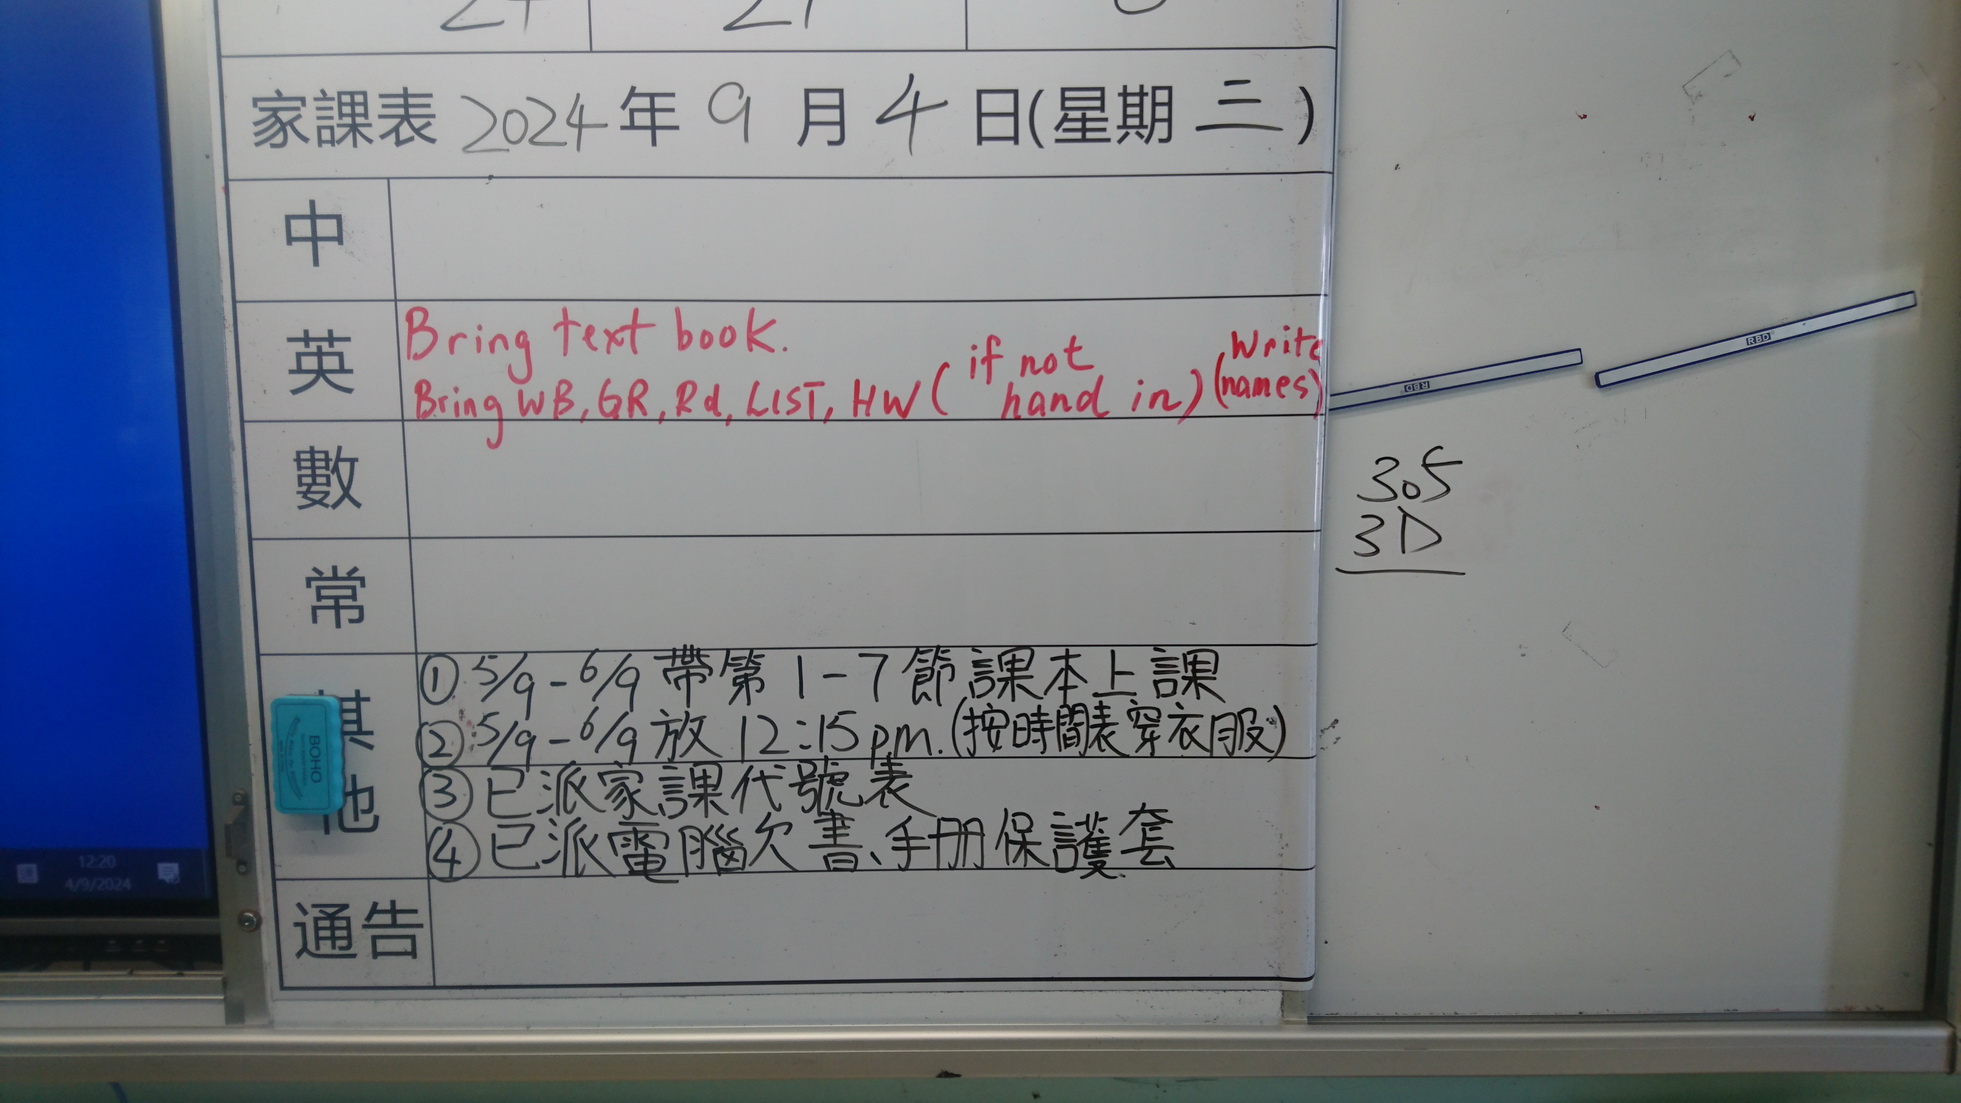 家課表 2024年 9 月 4 日(星期 三)
中
英
Bring text book.
Bring WB, GR, Rd, LIST, HW (if not hand in) (Write names)
數
常
其他
① 5/9-6/9 帶第 1-7 節課本上課
② 5/9-6/9 放 12:15pm. (按時間表穿衣服)
③ 已派家課代號表
④ 已派電腦欠書、手冊保護套
通告
305
3D
RBD
RBD
BOHO
12:20
4/9/2024